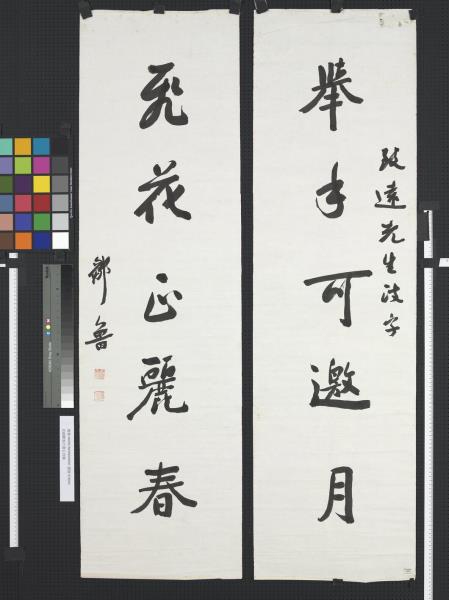 舉手可邀月
致遠先生
飛花正麗春
鄒魯